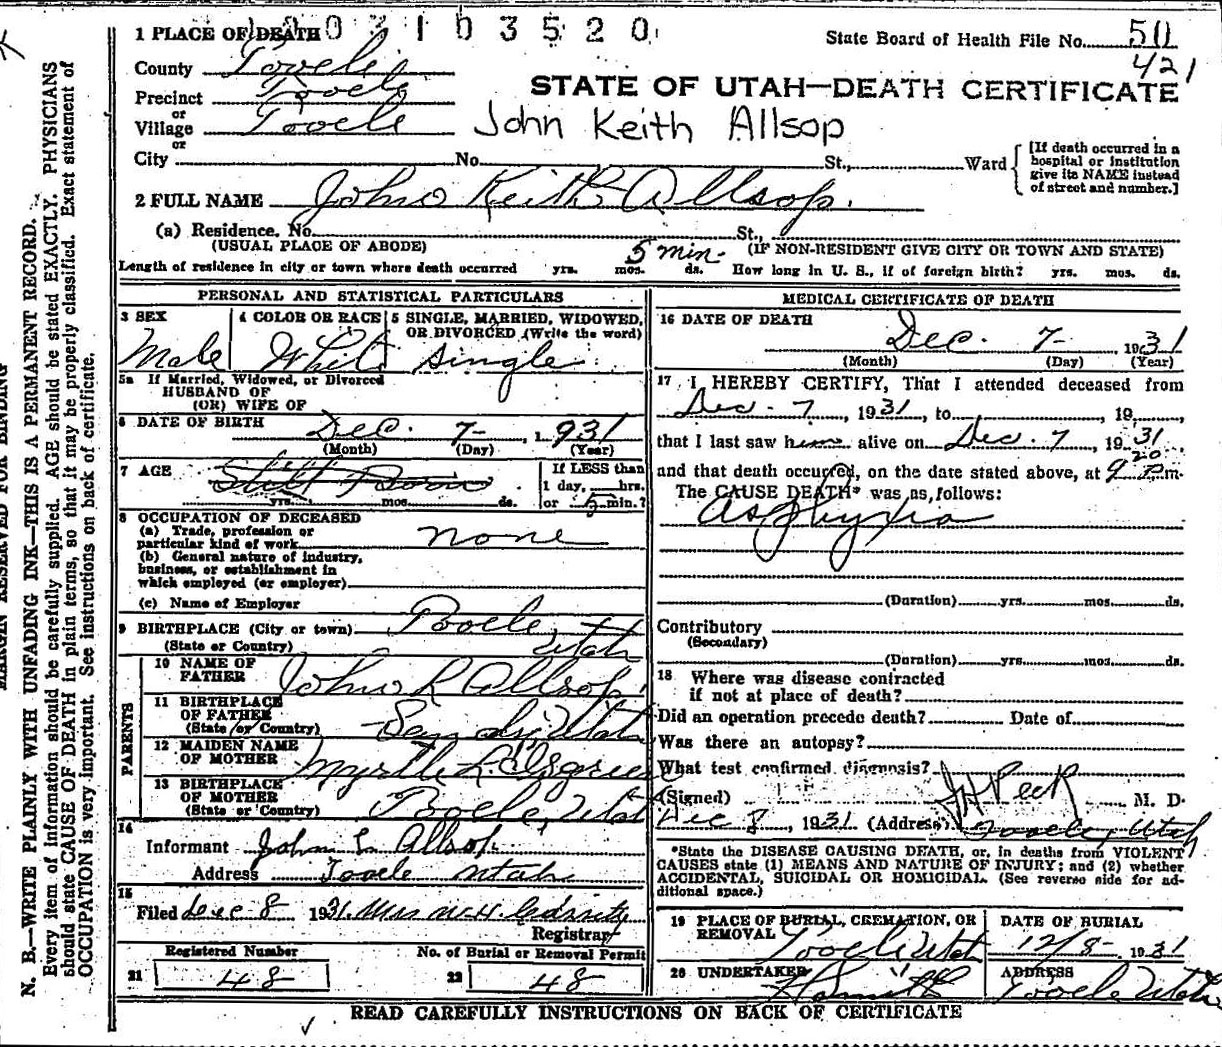 1 PLACE OF DEATH
State Board of Health File No. 50
421
County Tooele
STATE OF UTAH—DEATH CERTIFICATE
Precinct Tooele
or
Village Tooele
John Keith Allsop
or
City No. St., Ward
[If death occurred in a hospital or institution give its NAME instead of street and number.]
2 FULL NAME John Keith Allsop.
(a) Residence. No. St.,
(USUAL PLACE OF ABODE) (IF NON-RESIDENT GIVE CITY OR TOWN AND STATE)
5 min.
Length of residence in city or town where death occurred yrs. mos. ds. How long in U. S., if of foreign birth? yrs. mos. ds.
PERSONAL AND STATISTICAL PARTICULARS
3 SEX
Male
4 COLOR OR RACE
White
5 SINGLE, MARRIED, WIDOWED, OR DIVORCED (Write the word)
Single
5a If Married, Widowed, or Divorced
HUSBAND OF
(OR) WIFE OF
6 DATE OF BIRTH Dec. 7- , 1931
(Month) (Day) (Year)
7 AGE
Still Born
yrs. mos. ds.
If LESS than
1 day, hrs.
or 5 min.?
8 OCCUPATION OF DECEASED
(a) Trade, profession or
particular kind of work none
(b) General nature of industry,
business, or establishment in
which employed (or employer)
(c) Name of Employer
9 BIRTHPLACE (City or town) Tooele,
(State or Country) Utah
PARENTS
10 NAME OF FATHER John L Allsop
11 BIRTHPLACE
OF FATHER
(State or Country) Utah
12 MAIDEN NAME
OF MOTHER Myrtle L.
13 BIRTHPLACE
OF MOTHER
(State or Country) Tooele, Utah
14
Informant John L. Allsop.
Address Tooele Utah
15
Filed Dec 8 1931. Mrs
Registrar
Registered Number
21 48
No. of Burial or Removal Permit
22 48
MEDICAL CERTIFICATE OF DEATH
16 DATE OF DEATH
Dec. 7- 1931
(Month) (Day) (Year)
17 I HEREBY CERTIFY, That I attended deceased from
Dec. 7, 1931, to , 19 ,
that I last saw him alive on Dec. 7, 1931
and that death occurred, on the date stated above, at 9 20 P.m.
The CAUSE DEATH* was as follows:
Asphyxia
(Duration) yrs. mos. ds.
Contributory
(Secondary)
(Duration) yrs. mos. ds.
18 Where was disease contracted
if not at place of death?
Did an operation precede death? Date of
Was there an autopsy?
What test confirmed diagnosis?
(Signed) Peck M. D.
Dec 8, 1931 (Address) Tooele, Utah
*State the DISEASE CAUSING DEATH, or, in deaths from VIOLENT
CAUSES state (1) MEANS AND NATURE OF INJURY; and (2) whether
ACCIDENTAL, SUICIDAL OR HOMICIDAL. (See reverse side for ad-
ditional space.)
19 PLACE OF BURIAL, CREMATION, OR
REMOVAL
Tooele Utah
DATE OF BURIAL
12/8- 1931
20 UNDERTAKER
ADDRESS
Tooele Utah
READ CAREFULLY INSTRUCTIONS ON BACK OF CERTIFICATE
MARGIN RESERVED FOR BINDING
N. B.—WRITE PLAINLY WITH UNFADING INK—THIS IS A PERMANENT RECORD.
Every item of information should be carefully supplied. AGE should be stated EXACTLY. PHYSICIANS
should state CAUSE OF DEATH in plain terms, so that it may be properly classified. Exact statement of
OCCUPATION is very important. See instructions on back of certificate.